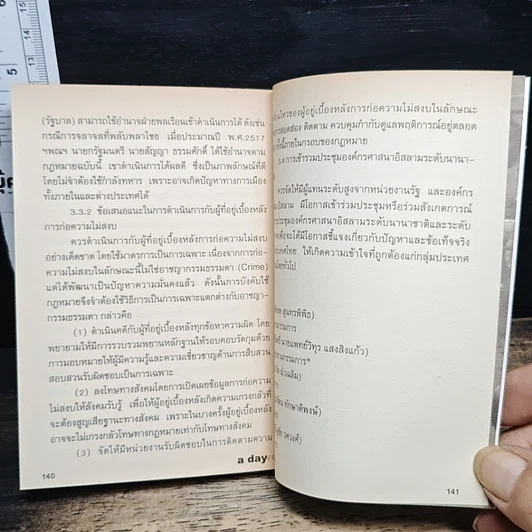 (รัฐบาล) สามารถใช้อำนาจฝ่ายพลเรือนเข้าดำเนินการได้ ดังเช่น
กรณีการจลาจลที่พลับพลาไชย เมื่อประมาณปี พ.ศ.2517
ฯพณฯ นายกรัฐมนตรี นายสัญญา ธรรมศักดิ์ ได้ใช้อำนาจตาม
กฎหมายฉบับนี้ เขาดำเนินการได้ผลดี ซึ่งเป็นภาพลักษณ์ที่ดี
โดยไม่จำต้องใช้กำลังทหาร เพราะอาจเกิดปัญหาทางการเมือง
ทั้งภายในและต่างประเทศได้
3.3.2 ข้อเสนอแนะในการดำเนินการกับผู้ที่อยู่เบื้องหลัง
การก่อความไม่สงบ
ควรดำเนินการกับผู้ที่อยู่เบื้องหลังการก่อความไม่สงบ
อย่างเด็ดขาด โดยใช้มาตรการเป็นการเฉพาะ เนื่องจากการก่อ-
ความไม่สงบในลักษณะนี้ไม่ใช่อาชญากรรมธรรมดา (Crime)
แต่ได้พัฒนาเป็นปัญหาความมั่นคงแล้ว ดังนั้นการบังคับใช้
กฎหมายจึงจำต้องใช้วิธีการเป็นการเฉพาะแตกต่างกับอาชญา-
กรรมธรรมดา กล่าวคือ
(1) ดำเนินคดีกับผู้ที่อยู่เบื้องหลังทุกข้อหาความผิด โดย
พยายามให้มีการรวบรวมพยานหลักฐานให้รอบคอบรัดกุมด้วย
การมอบหมายให้ผู้มีความรู้และความเชี่ยวชาญด้านการสืบสวน
สอบสวนรับผิดชอบเป็นการเฉพาะ
(2) ลงโทษทางสังคมโดยการเปิดเผยข้อมูลการก่อความ
ไม่สงบให้สังคมรับรู้ เพื่อให้ผู้อยู่เบื้องหลังเกิดความเกรงกลัวที่
จะต้องสูญเสียฐานะทางสังคม เพราะในบางครั้งผู้อยู่เบื้องหลัง
อาจจะไม่เกรงกลัวโทษทางกฎหมายเท่ากับโทษทางสังคม
(3) จัดให้มีหน่วยงานรับผิดชอบในการติดตามความ
140
a day
ของผู้อยู่เบื้องหลังการก่อความไม่สงบในลักษณะ
ติดตาม ควบคุมกำกับดูแลพฤติการณ์อยู่ตลอด
ภายในกรอบของกฎหมาย
3.4 การเข้าร่วมประชุมองค์กรศาสนาอิสลามระดับนานา-
ควรจัดให้มีผู้แทนระดับสูงจากหน่วยงานรัฐ และองค์กร
มีโอกาสเข้าร่วมประชุมหรือร่วมสังเกตการณ์
ประชุมองค์กรศาสนาอิสลามระดับนานาชาติและระดับ
เพื่อจะได้มีโอกาสชี้แจงเกี่ยวกับปัญหาและข้อเท็จจริง
ให้เกิดความเข้าใจที่ถูกต้องแก่กลุ่มประเทศ
ทั่วไป
สุนทรพิพิธ
กรรมการ
นายแพทย์วิทูร แสงสิงแก้ว)
กรรมการ*
ทักษาดิพงษ์)
141